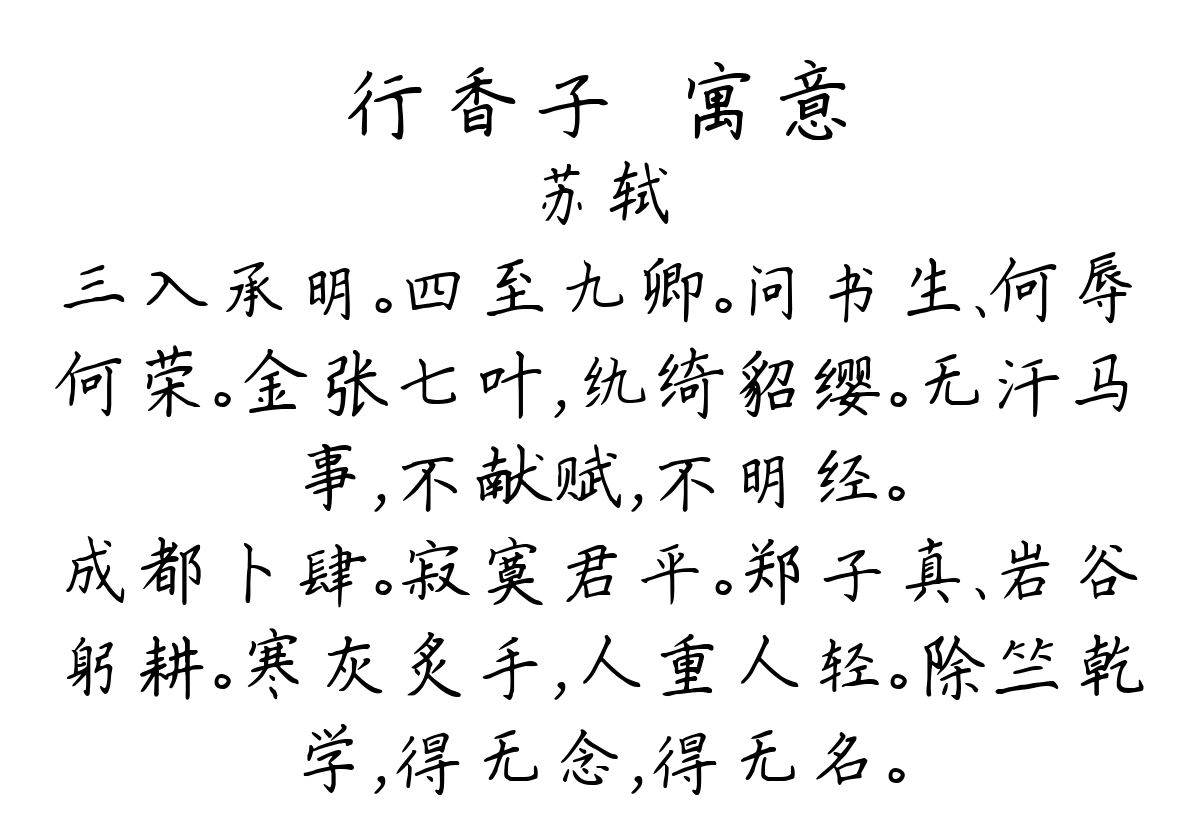 行香子 寓意
苏轼
三入承明。四至九卿。问书生、何辱
何荣。金张七叶,纨绮貂缨。无汗马
事,不献赋,不明经。
成都卜肆。寂寞君平。郑子真、岩谷
躬耕。寒灰炙手,人重人轻。除竺乾
学,得无念,得无名。